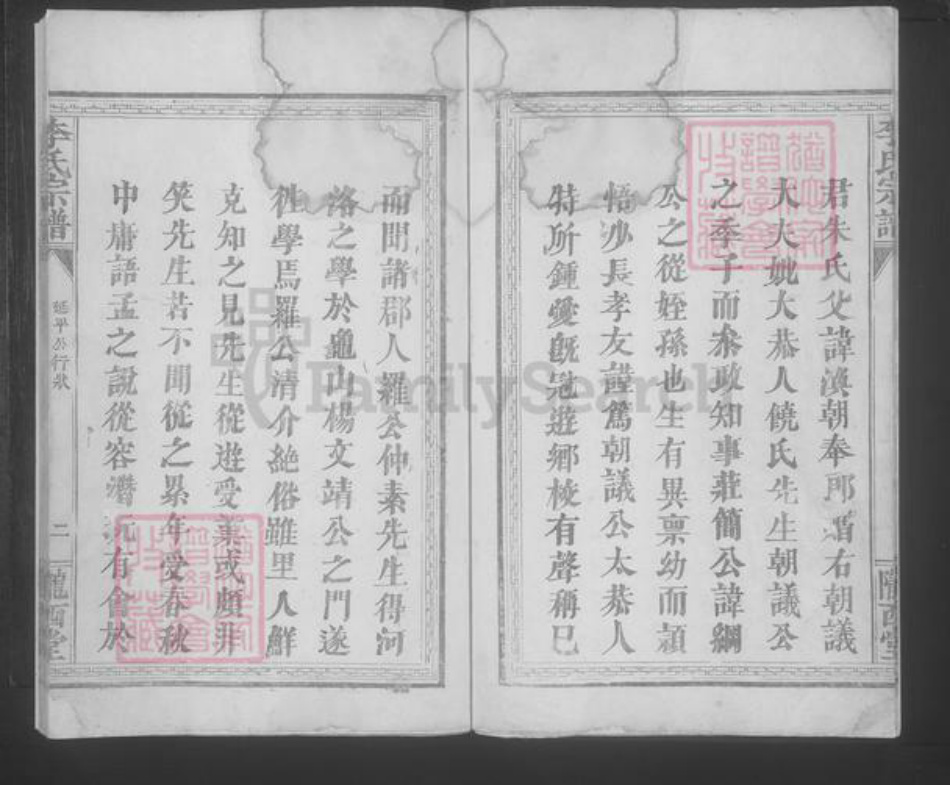 李氏宗譜
隴西堂
君朱氏父諱渙朝奉郎贈右朝議
大夫妣太恭人饒氏先生朝議公
之季子而參政知事莊簡公諱綱
公之從姪孫也生有異稟幼而穎
悟少長孝友謹篤朝議公太恭人
特所鍾愛既冠遊鄉校有聲稱已
而聞諸郡人羅公仲素先生得河
洛之學於龜山楊文靖公之門遂
徃學焉羅公清介絕俗雖里人鮮
克知之見先生從遊受業或頗非
笑先生若不聞從之累年受春秋
中庸語孟之說從容潛玩有會於
李氏宗譜
延平公行狀
二
隴西堂
FamilySearch